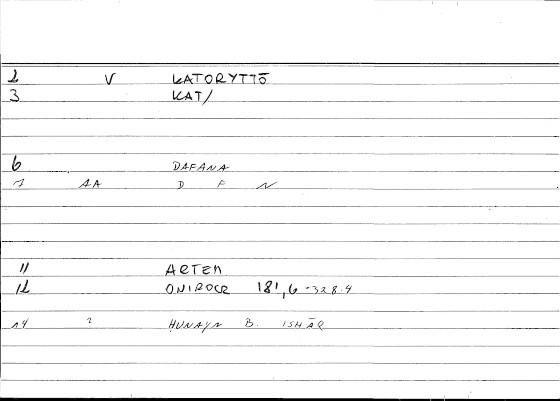 2 V KATORYTTŌ
3 KAT/
6 DAFANA
7 AA D F N
11 ARTEM
12 ONIROCR 181,6-328.4
14 2 HUNAYN B. ISHĀQ